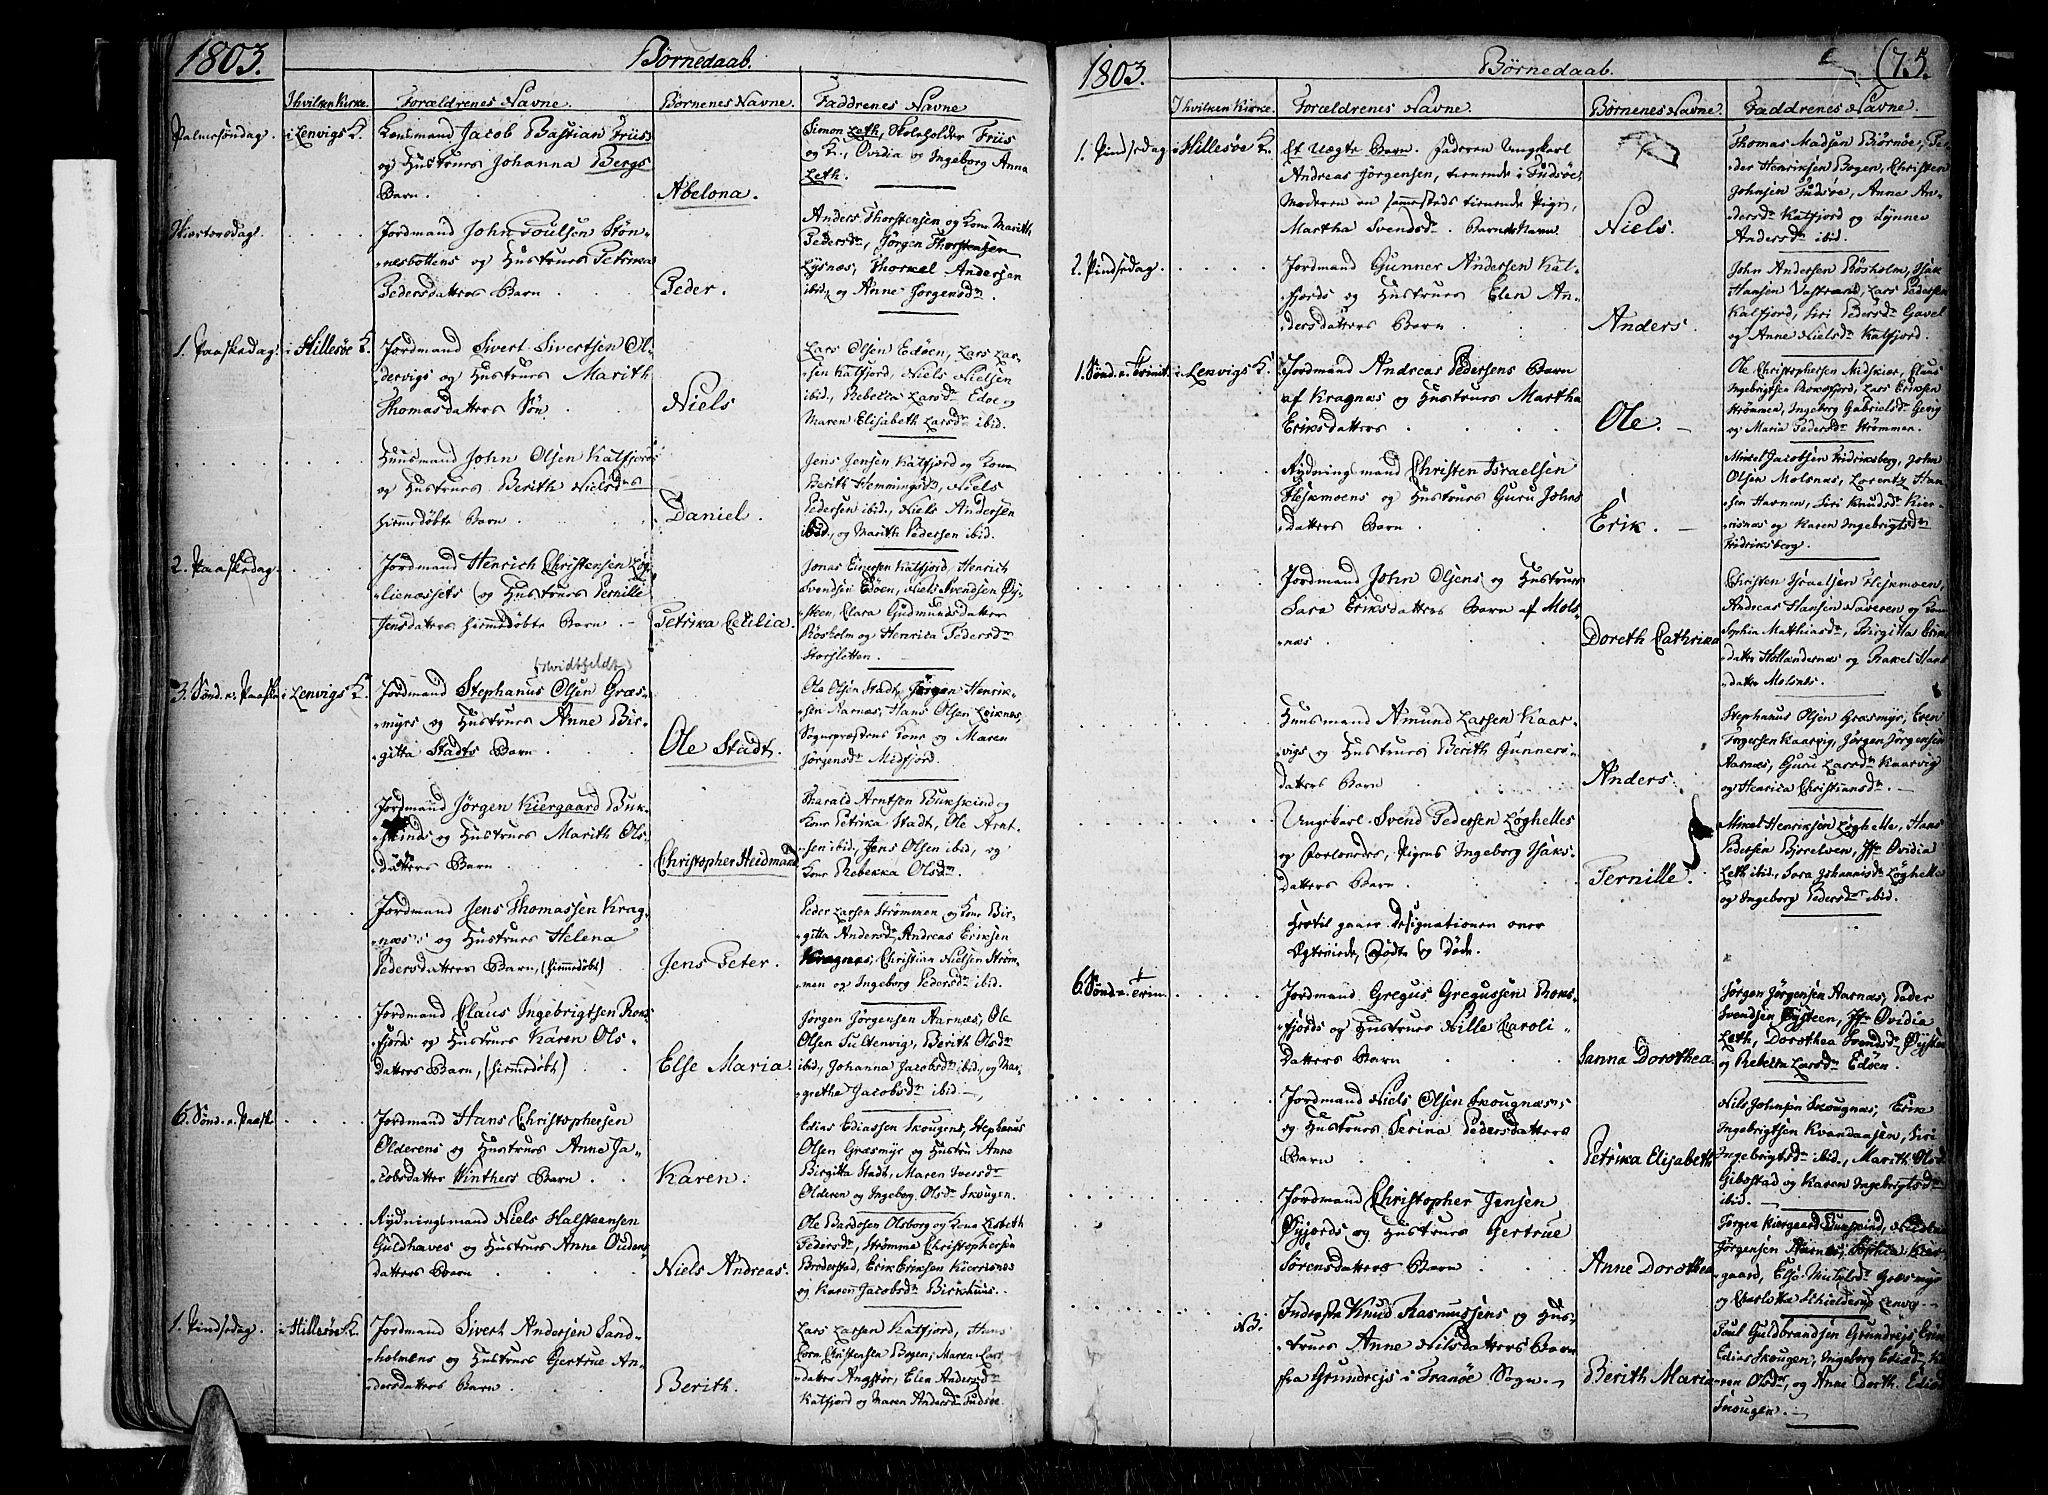 1803.
Børnedaab.
I hvilken Kirke.
Forældrenes Navne.
Børnenes Navne.
Faddrenes Navne
Palmesøndag.
i Lenvigs K.
Kensmand Jacob Bastian Friis
og Hustrues Johanna Bergs
Barn.
Abelona.
Simon Leth, Skoleholder Friis
og K., Ovidia og Ingeborg Anna
Leth.
Skiertorsdag.
Jordmand John Poulsen Støn-
næsbottens og Hustrues Petrika
Pedersdatters Barn
Peder.
Anders Thorstensen og Kone Marith
Pedersdr., Jørgen Thorstensen
Lysnæs, Thorkel Andersen
ibid, og Anne Jørgensdr.
1. Paaskedag.
i Hillesøe K.
Jordmand Sivert Sivertsen Ol-
dervigs og Hustrues Marith
Thomasdatters Søn
Niels
Lars Olsen Edøen, Lars Lar-
sen Katfjord, Niels Nielsen
ibid, Rebekka Larsdr. Edøe og
Maren Elisabeth Larsdr. ibid.
Huusmand John Olsen Katfjords
og Hustrues Berith Nielsdrs
hiemmedøbte Barn
Daniel.
Jens Jensen Katfjord og Kone
Berith Hemmingsdr, Niels
Pedersen ibid, Niels Andersen
ibid, og Marith Pedersen ibid.
2. Paaskedag.
Jordmand Henrich Christensen Løg-
lienæssets og Hustrues Pernille
Jensdatters hiemmedøbte Barn
Petrika Cecilia.
Jonas Einersen Katfjord, Henrich
Svendsen Edøen, Niels Svendsen Øy-
steen, Clara Gudmundsdatter
Røsholm og Henrica Pedersdr
Storsletten.
3. Sønd. e. Paaske
i Lenvigs K.
(Hvidtfeldt)
Jordmand Stephanus Olsen Græs-
myrs og Hustrues Anne Bir-
gitta Stadts Barn
Ole Stadt.
Ole Olsen Stadt, Jørgen Henrik-
sen Aarnæs, Hans Olsen Leiknes,
Sognepræstens Kone og Maren
Jørgensdr Midfjord.
Jordmand Jørgen Kiergaard Buk-
skinds og Hustrues Marith Ols-
datters Barn
Christopher Heidmand
Harald Arntsen Bukskind og
Kone Petrika Stadt, Ole Arnt-
sen ibid, Jens Olsen ibid, og
Kone Rebekka Olsdr.
Jordmand Jens Thomassen Krag-
næs: og Hustrues Helena
Pedersdatters Barn, (hiemmedøbt)
Jens Peter.
Peder Larsen Strømmen og Kone Bir-
gitta Andersdr, Andreas Eriksen
Kragnæs, Christian Nielsen Strøm-
men og Ingeborg Pedersdr ibid.
Jordmand Claus Ingebrigtsen Rons-
fjords og Hustrues Karen Ols-
datters Barn, (hiemmedøbt)
Else Maria.
Jørgen Jørgensen Aarnæs, Ole
Olsen Sultenvig, Berith Olsdr
ibid, Johanna Jacobsdr ibid, og Mar-
grethe Jacobsdr ibid.
6. Sønd. e. Paaske
Jordmand Hans Christophersen
Olderens og Hustrues Anne Ja-
cobsdatter Vinthers Barn
Karen.
Edias Ediassen Skougens, Stephanus
Olsen Græsmyr og Hustru Anne
Birgitta Stadt, Maren Iversdr
Olderen og Ingeborg Olsdr Skougen.
Rydningsmand Niels Halsteensen
Guldhaves og Hustrues Anne Oudens-
datters Barn
Niels Andreas.
Ole Bardosen Olsborg og Kone Lisbeth
Pedersdr, Strømme Christophersen
Brederstad, Erik Eriksen Kierrisnes
og Karen Jacobsdr Birkhuus.
1. Pindsedag.
i Hillesøe K.
Jordmand Sivert Andersen Sand-
holmens og Hustrues Gertrue An-
dersdatters Barn
Berith.
Lars Larsen Katfjord, Hans
Corn. Christensen Bogen, Maren Lars-
datter Angstør, Elen Andersdr
Katfjord og Maren Andersdr Tudsøe.
1803.
Børnedaab.
(75.
I hvilken Kirke.
Forældrenes Navne.
Børnenes Navne
Faddrenes Navne.
1. Pindsedag
i Hillesøe K.
Et Uægte Barn. Faderen Ungekarl
Andreas Jørgensen, tienende i Tudsøe,
Moderen en sammesteds tienende Pige,
Martha Svendsdr. Barnets Navn
Niels.
Thomas Madsen Biørnøe, Pe-
der Henriksen Bogen, Christen
Johnsen Tudsøe, Anne An-
dersdr Katfjord og Lynnea
Andersdr ibid.
2. Pindsedag.
Jordmand Gunner Andersen Kat-
fjords og Hustrues Elen An-
dersdatters Barn
Anders.
John Andersen Røsholm, Isak
Hansen Vastrand, Lars Pedersen
Katfjord, Siri Pedersdr Gavel
og Anne Nielsdr Katfjord.
1. Sønd. e. Trinit.
i Lenvigs K.
Jordmand Andreas Pedersens Barn
af Kragnæs og Hustrues Martha
Eriksdatters
Ole.
Ole Christophersen Midskiær, Claus
Ingebrigtsen Ronsfjord, Lars Eriksen
Strømmen, Ingeborg Gabrielsdr Gevig
og Maria Pedersdr Strømmen.
Rydningsmand Christen Israelsen
Fleskmoens og Hustrues Guru Johns
datters Barn
Erik.
Mikel Jacobsen Fridriksberg, John
Olsen Molsnæs, Lorentz Han-
sen Havnen, Siri Knudsdr Kier-
risnæs og Karen Ingebrigtsdr
Fridriksberg.
Jordmand John Olsens og Hustrues
Sara Eriksdatters Barn af Mols-
næs
Doreth Cathrina
Christen Israelsen Fleskmoen,
Andreas Hansen Naveren og Kone
Sophia Mathiasdr, Birgitta Eriks-
datter Hollændernæs og Rakel Hans
datter Molsnes.
Huusmand Amund Larsen Kaar-
vigs og Hustrues Berith Gunners-
datters Barn
Anders.
Stephanus Olsen Græsmyr, Even
Torgersen Kaarvig, Jørgen Jørgensen
Aarnæs, Guru Larsdr Kaarvig
og Henrica Christiansdr.
Ungekarl Svend Pedersen Løghelles
og Forlovedes, Pigens Ingeborg Isaks-
datters Barn
Pernille.
Mikel Henriksen Løghelle, Hans
Pedersen Bjorelven, Jfr Ovidia
Leth ibid, Sara Johannisdr Løghelle
og Ingeborg Pedersdr ibid.
Hertil gaaer Designationen over
Ægteviede, Fødte og Døde.
6. Sønd. e. Trin.
Jordmand Gregus Gregussen Rons-
fjords og Hustrues Nille Caroli-
datters Barn
Sanna Dorothea.
Jørgen Jørgensen Aarnæs, Peder
Svendsen Øysteen, Jfr Ovidia
Leth, Dorothea Svendsdr Øysteen
og Rebekka Larsdr Edøen.
Jordmand Niels Olsen Skougnæs:
og Hustrues Serina Pedersdatters
Barn
Petrika Elisabeth
Nils Johnsen Skougnæs, Erik
Ingebrigtsen Kvandaasen, Siri
Ingebrigtsdr ibid, Marith Olsdr
Gibostad og Karen Ingebrigtsdr
ibid.
Jordmand Christopher Jensen
Øyjords og Hustrues Gertrue
Sørensdatters Barn
Anne Dorothea
Jørgen Kiergaard Bukskind,
Jørgensen Aarnæs, Sophia Kier-
gaard, Else Mikelsdr Græsmyr
og Charlotta Schielderup Lenvig
NB.
Inderste Knud Rasmussens og Hus-
trues Anne Nilsdatters Barn
fra Grundrejs i Tranøe Sogn.
Berith Maria
Paul Guldbrandsen Grundrejs, Erik
Edias Skougen, Ingeborg Ediasdr, Ka-
ren Olsdr, og Anne Dorth. Ediasdr
Skougen.